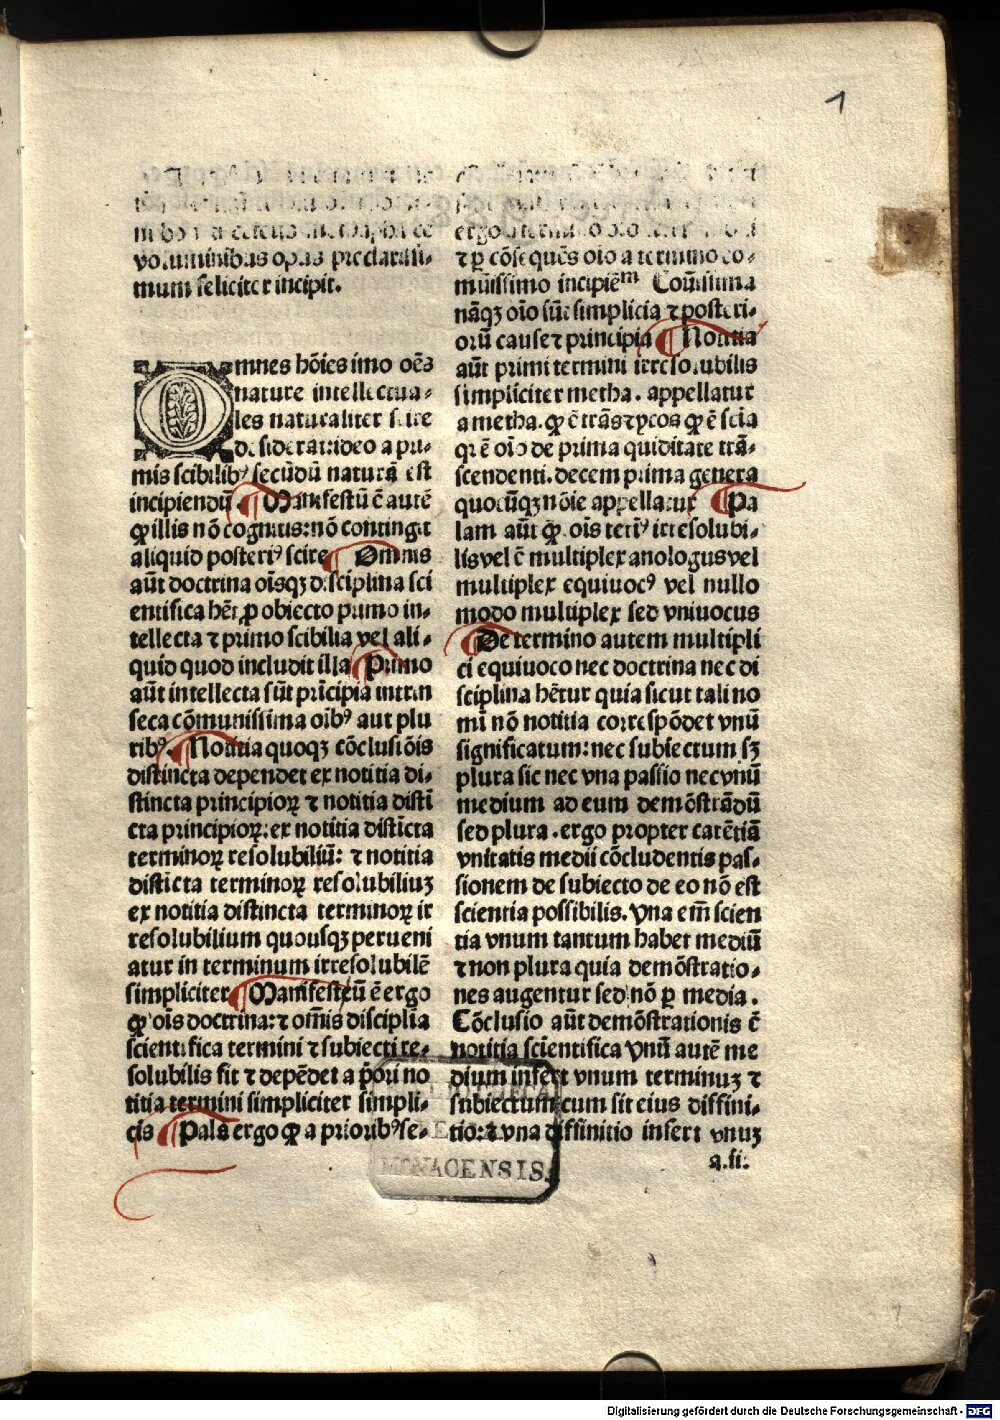 1
voluminibus opus preclarissi-
mum feliciter incipit.
Omnes hōies imo oēs
nature intellectua-
les naturaliter scire
desiderāt: ideo a pri-
mis scibilibꝰ secūdū naturā est
incipiendū. ¶ Manifestū ē autē
ꝙ illis nō cognitis: nō contingit
aliquid posteriꝰ scire ¶ Omnis
aūt doctrina oīsqꝫ disciplina sci
entifica hēt ꝓ obiecto primo in-
tellecta ⁊ primo scibilia vel ali-
quid quod includit illa ¶ Primo
aūt intellecta sūt prīcipia intrin
seca cōmunissima oībꝰ aut plu
ribꝰ. ¶ Notitia quoqꝫ cōclusiōis
distincta dependet ex notitia di-
stincta principioꝝ ⁊ notitia distī
cta principioꝝ: ex notitia distīcta
terminoꝝ resolubiliū: ⁊ notitia
distīcta terminoꝝ resolubiliuꝫ
ex notitia distincta terminoꝝ ir
resolubilium quousqꝫ perueni
atur in terminum irresolubilē
simpliciter ¶ Manifestū ē ergo
ꝙ oīs doctrina: ⁊ om̄is disciplīa
scientifica termini ⁊ subiecti re-
solubilis fit ⁊ depēdet a p̄ori no
titia termini simpliciter simpli-
cis ¶ Pals ergo ꝙ a prioribꝰ se-
⁊ ꝑ cōsequēs oīo a termino co-
mūissimo incipiēm Cōmūissima
nāqꝫ oīo sūt simplicia ⁊ posteri-
orū cause ⁊ principia ¶ Notitia
aūt primi termini irresolubilis
simpliciter metha. appellatur
a metha. ꝙ ē trās ⁊ ycos ꝙ ē scīa
qꝛ ē oīo de prima quiditate trā-
scendenti. decem prima genera
quocūqꝫ nōie appellatur ¶ Pa
lam aūt ꝙ. oīs terīꝰ irresolubi-
lis vel ē multiplex anologus vel
multiplex equiuocꝰ vel nullo
modo multiplex sed vniuocus
¶ De termino autem multipli
ci equiuoco nec doctrina nec di
sciplina hētur quia sicut tali no
mī nō notitia correspōdet vnū
significatum: nec subiectum sꝫ
plura sic nec vna passio nec vnū
medium ad eum demōstrādū
sed plura. ergo propter carētiā
vnitatis medii cōcludentis pas-
sionem de subiecto de eo nō est
scientia possibilis. Vna em̄ scien
tia vnum tantum habet mediū
⁊ non plura quia demōstratio-
nes augentur sed nō ꝑ media.
Cōclusio aūt demōstrationis ē
notitia scientifica vnū autē me
dium infert vnum terminuꝫ ⁊
subiectum cum sit eius diffini-
tio: ⁊ vna diffinitio infert vnuꝫ
a.ii.
MONACENSIS.
Digitalisierung gefördert durch die Deutsche Forschungsgemeinschaft - DFG